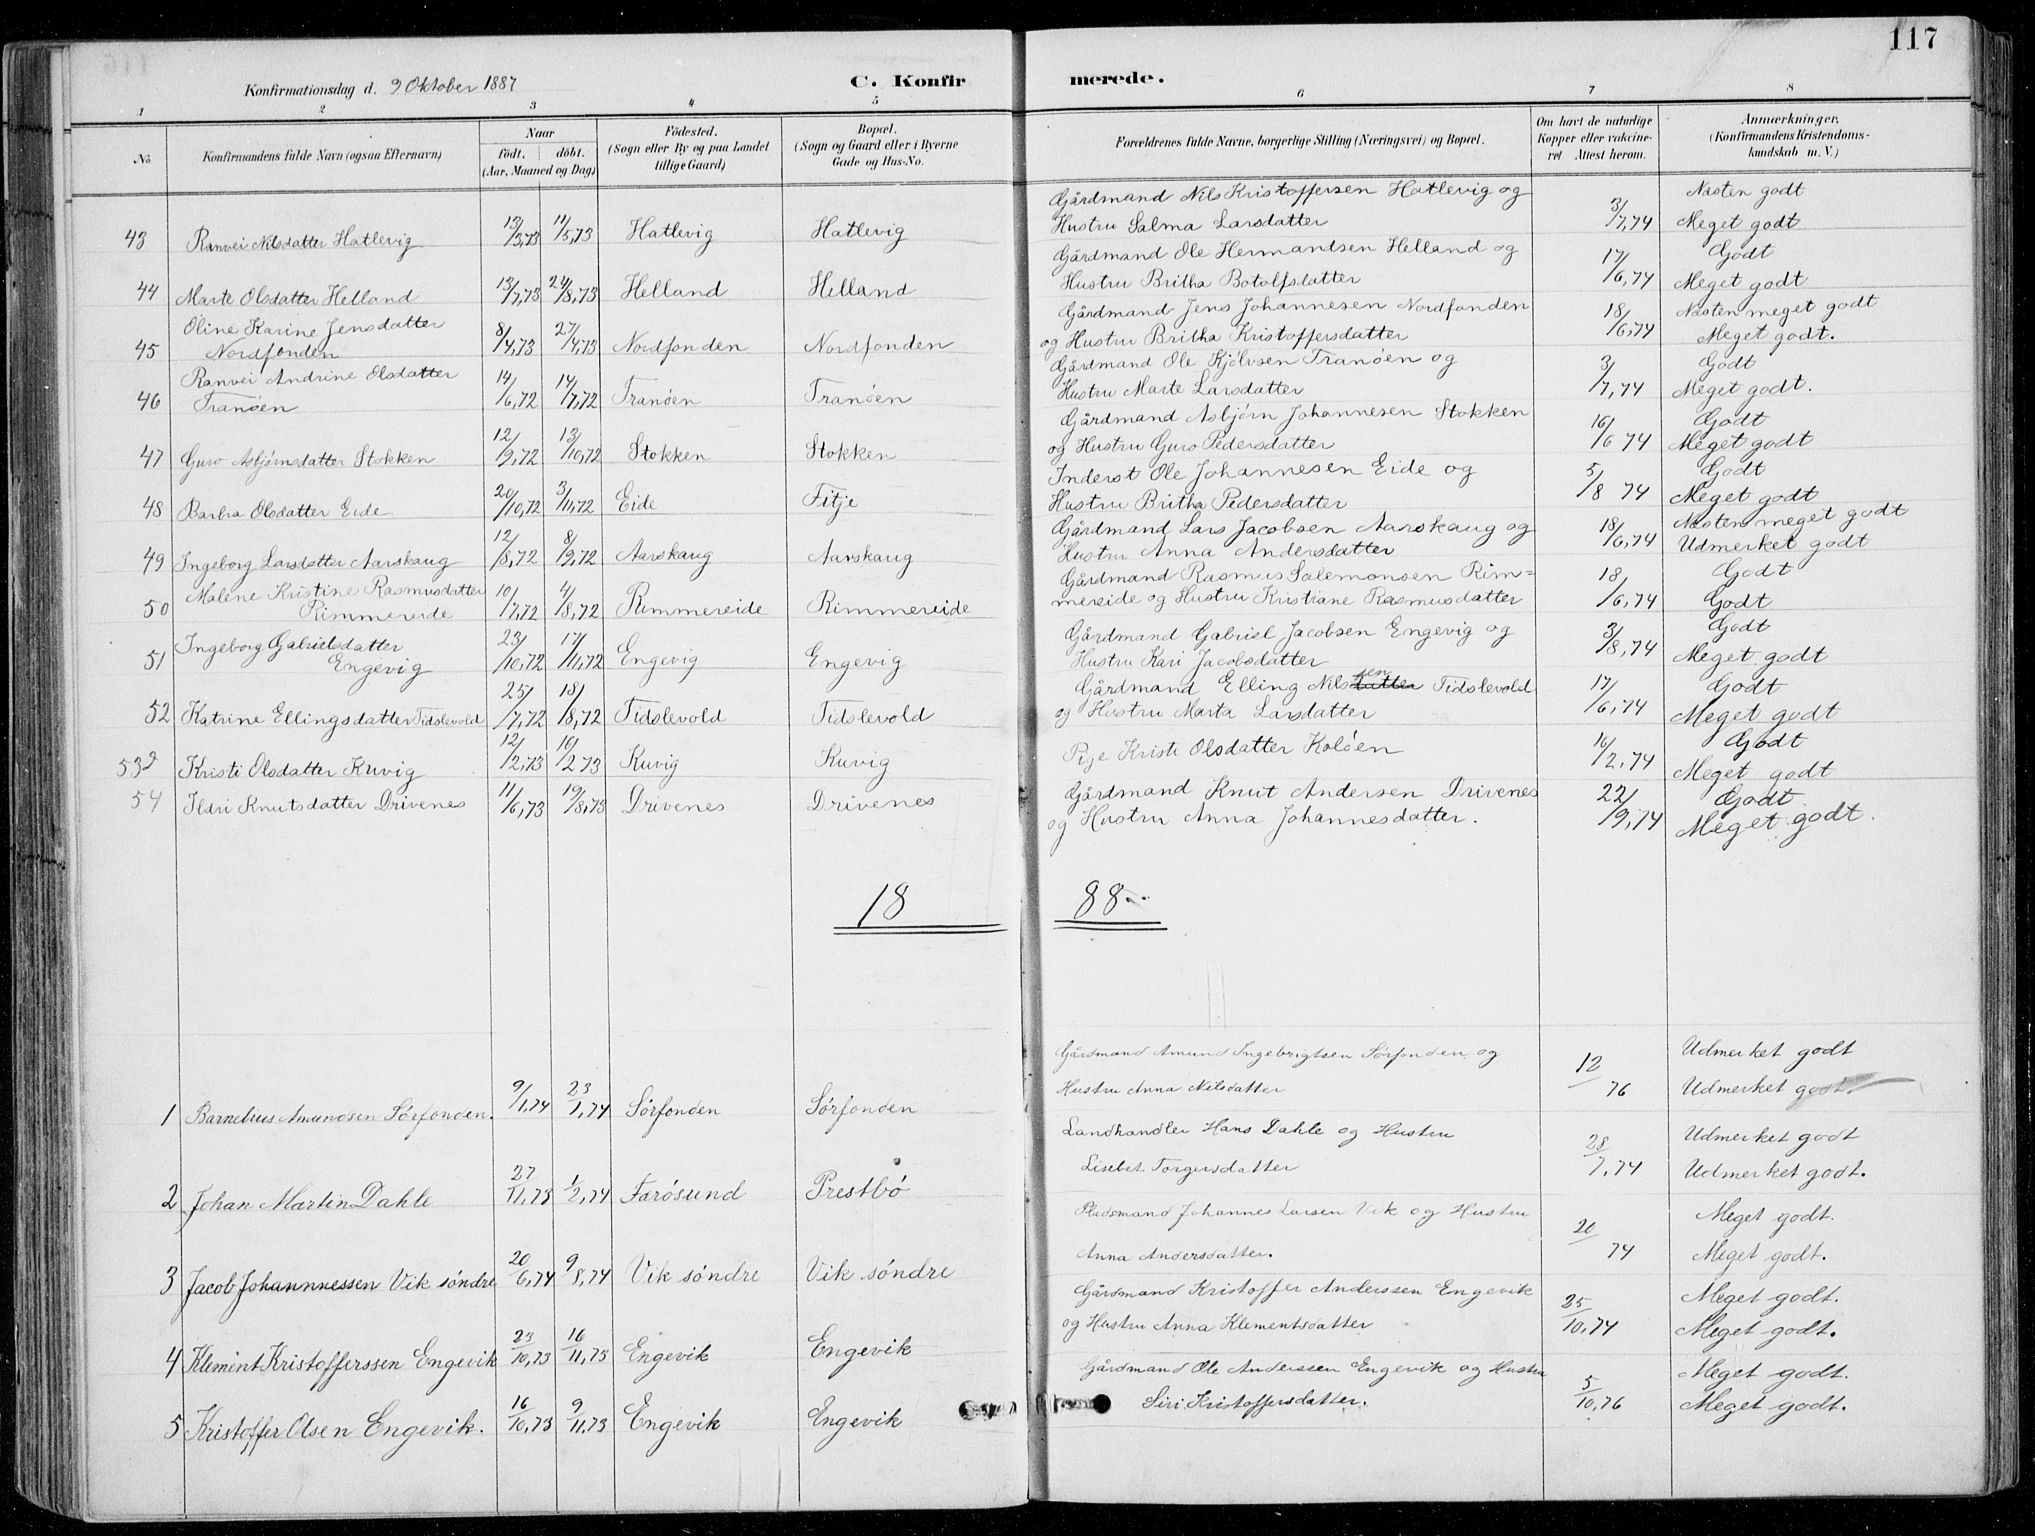 117
Konfirmationsdag d. 9 Oktober 1887
C. Konfirmerede.
1 2 3 4 5 6 7 8
No. Konfirmandens fulde Navn (ogsaa Efternavn)
Naar født. døbt. (Aar, Maaned og Dag)
Fødested. (Sogn eller By og paa Landet tillige Gaard)
Bopæl. (Sogn og Gaard eller i Byerne Gade og Hus-No.
Forældrenes fulde Navne, borgerlige Stilling (Næringsvei) og Bopæl.
Om havt de naturlige Kopper eller vakcineret Attest herom.
Anmærkninger. (Konfirmandens Kristendomskundskab m. V.)
43 Ranvei Nilsdatter Hatlevig 13/3,73 11/5,73 Hatlevig Hatlevig Gårdmand Nils Kristoffersen Hatlevig og Hustru Salma Larsdatter 3/7,74 Næsten godt Meget godt
44 Marte Olsdatter Helland 13/7,73 24/8,73 Helland Helland Gårdmand Ole Hermantsen Helland og Hustru Britha Botolfsdatter 17/6,74 Godt Meget godt
45 Oline Karine Jensdatter Nordfonden 8/4,73 27/4,73 Nordfonden Nordfonden Gårdmand Jens Johannesen Nordfonden og Hustru Britha Kristoffersdatter 18/6,74 Næsten meget godt Meget godt.
46 Ranvei Andrine Olsdatter Tranöen 14/6,72 14/7,72 Tranöen Tranöen Gårdmand Ole Kjölvsen Tranöen og Hustru Marte Larsdatter 3/7,74 Godt Meget godt.
47 Guro Asbjörnsdatter Stokken 12/9,72 13/10,72 Stokken Stokken Gårdmand Asbjörn Johannesen Stokken og Hustru Guro Pedersdatter 16/6 74 Godt Meget godt
48 Barbra Olsdatter Eide 20/10,72 3/11,72 Eide Fitje Inderst Ole Johannesen Eide og Hustru Britha Pedersdatter 5/8 74 Godt Meget godt
49 Ingeborg Larsdatter Aarskaug 12/8,72 8/9,72 Aarskaug Aarskaug Gårdmand Lars Jacobsen Aarskaug og Hustru Anna Andersdatter 18/6,74 Næsten meget godt Udmerket godt
50 Malene Kristine Rasmusdatter Rimmereide 10/7,72 4/8,72 Rimmereide Rimmereide Gårdmand Rasmus Salemonsen Rimmereide og Hustru Kristiane Rasmusdatter 18/6,74 Godt Godt
51 Ingeborg Gabrielsdatter Engevig 23/10,72 17/11,72 Engevig Engevig Gårdmand Gabriel Jacobsen Engevig og Hustru Kari Jacobsdatter 3/8,74 Godt Meget godt
52 Katrine Ellingsdatter Tidslevold 25/7,72 18/8,72 Tidslevold Tidslevold Gårdmand Elling Nilssen Tidslevold og Hustru Marta Larsdatter 17/6,74 Godt Meget godt
53 Kristi Olsdatter Kuvig 12/2,73 16/2 73 Kuvig Kuvig Pige Kristi Olsdatter Kolöen 16/2,74 Godt Meget godt
54 Ildri Knutsdatter Drivenes 11/6,73 19/8,73 Drivenes Drivenes Gårdmand Knut Andersen Drivenes og Hustru Anna Johannesdatter. 22/9,74 Godt Meget godt.
18 88
1 Barnelius Amundsen Sörfonden. 9/1,74 23/1,74 Sörfonden Sörfonden Gårdmand Amund Ingebrigtsen Sörfonden og Hustru Anna Nilsdatter 12/76 Udmerket godt Udmerket godt.
2 Johan Martin Dahle 27/11,73 1/2,74 Farösund Prestbö Landhandler Hans Dahle og Hustru Lisebet Torgersdatter 28/7,74 Udmerket godt Udmerket godt.
3 Jacob Johannnessen Vik söndre 20/6,74 9/8,74 Vik söndre Vik söndre Pladsmand Johannes Larsen Vik og Hustru Anna Andersdatter. 20/74 Meget godt. Meget godt.
4 Klement Kristofferssen Engevik 23/10,73 16/11,73 Engevik Engevik Gårdmand Kristoffer Anderssen Engevik og Hustru Anna Klementsdatter 25/10,74 Meget godt. Meget godt.
5 Kristoffer Olsen Engevik. 16/10,73 9/11,73 Engevik Engevik Gårdmand Ole Anderssen Engevik og Hustru Siri Kristoffersdatter. 5/10,76 Meget godt. Meget godt.